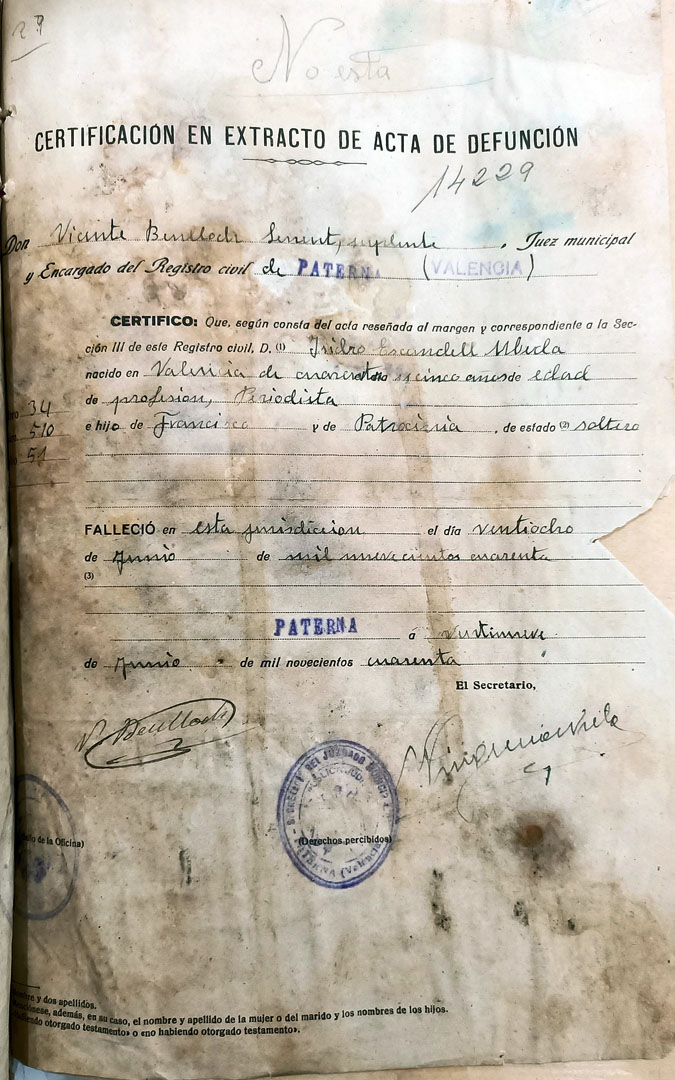 No esta
CERTIFICACIÓN EN EXTRACTO DE ACTA DE DEFUNCIÓN
14229
Don Vicente Benlloch Senent, suplente, Juez municipal
y Encargado del Registro civil de PATERNA (VALENCIA)
CERTIFICO: Que, según consta del acta reseñada al margen y correspondiente a la Sec-
ción III de este Registro civil, D. (1) Isidro Escandell Ubeda
nacido en Valencia de cuarenta y cinco años de edad
34 de profesión, Periodista
510 e hijo de Francisco y de Patrocinia, de estado (2) soltero
51
FALLECIÓ en esta jurisdiccion el día ventiocho
de Junio de mil nuevecientos cuarenta
(3)
PATERNA á
de Junio de mil novecientos cuarenta
El Secretario,
V. Benlloch
DEL JUZGADO
PATERNA (Valencia)
(Derechos percibidos)
de la Oficina)
y dos apellidos.
además, en su caso, el nombre y apellido de la mujer o del marido y los nombres de los hijos.
otorgado testamento» o «no habiendo otorgado testamento».